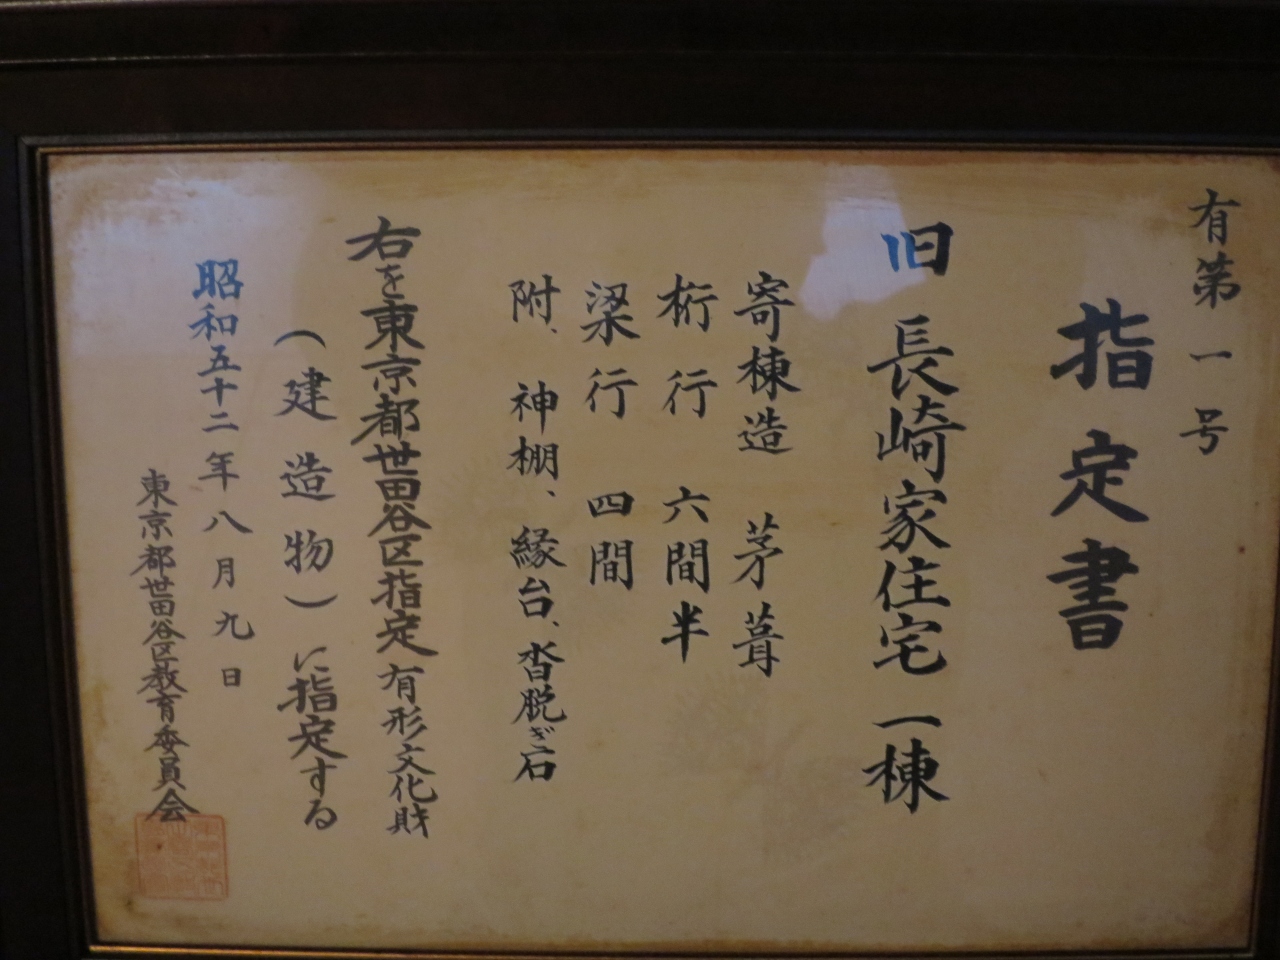 有第一号
指定書
旧長崎家住宅一棟
寄棟造 茅葺
桁行 六間半
梁行 四間
附、神棚、縁台、沓脱ぎ石
右を東京都世田谷区指定有形文化財
（建造物）に指定する
昭和五十二年八月九日
東京都世田谷区教育委員会